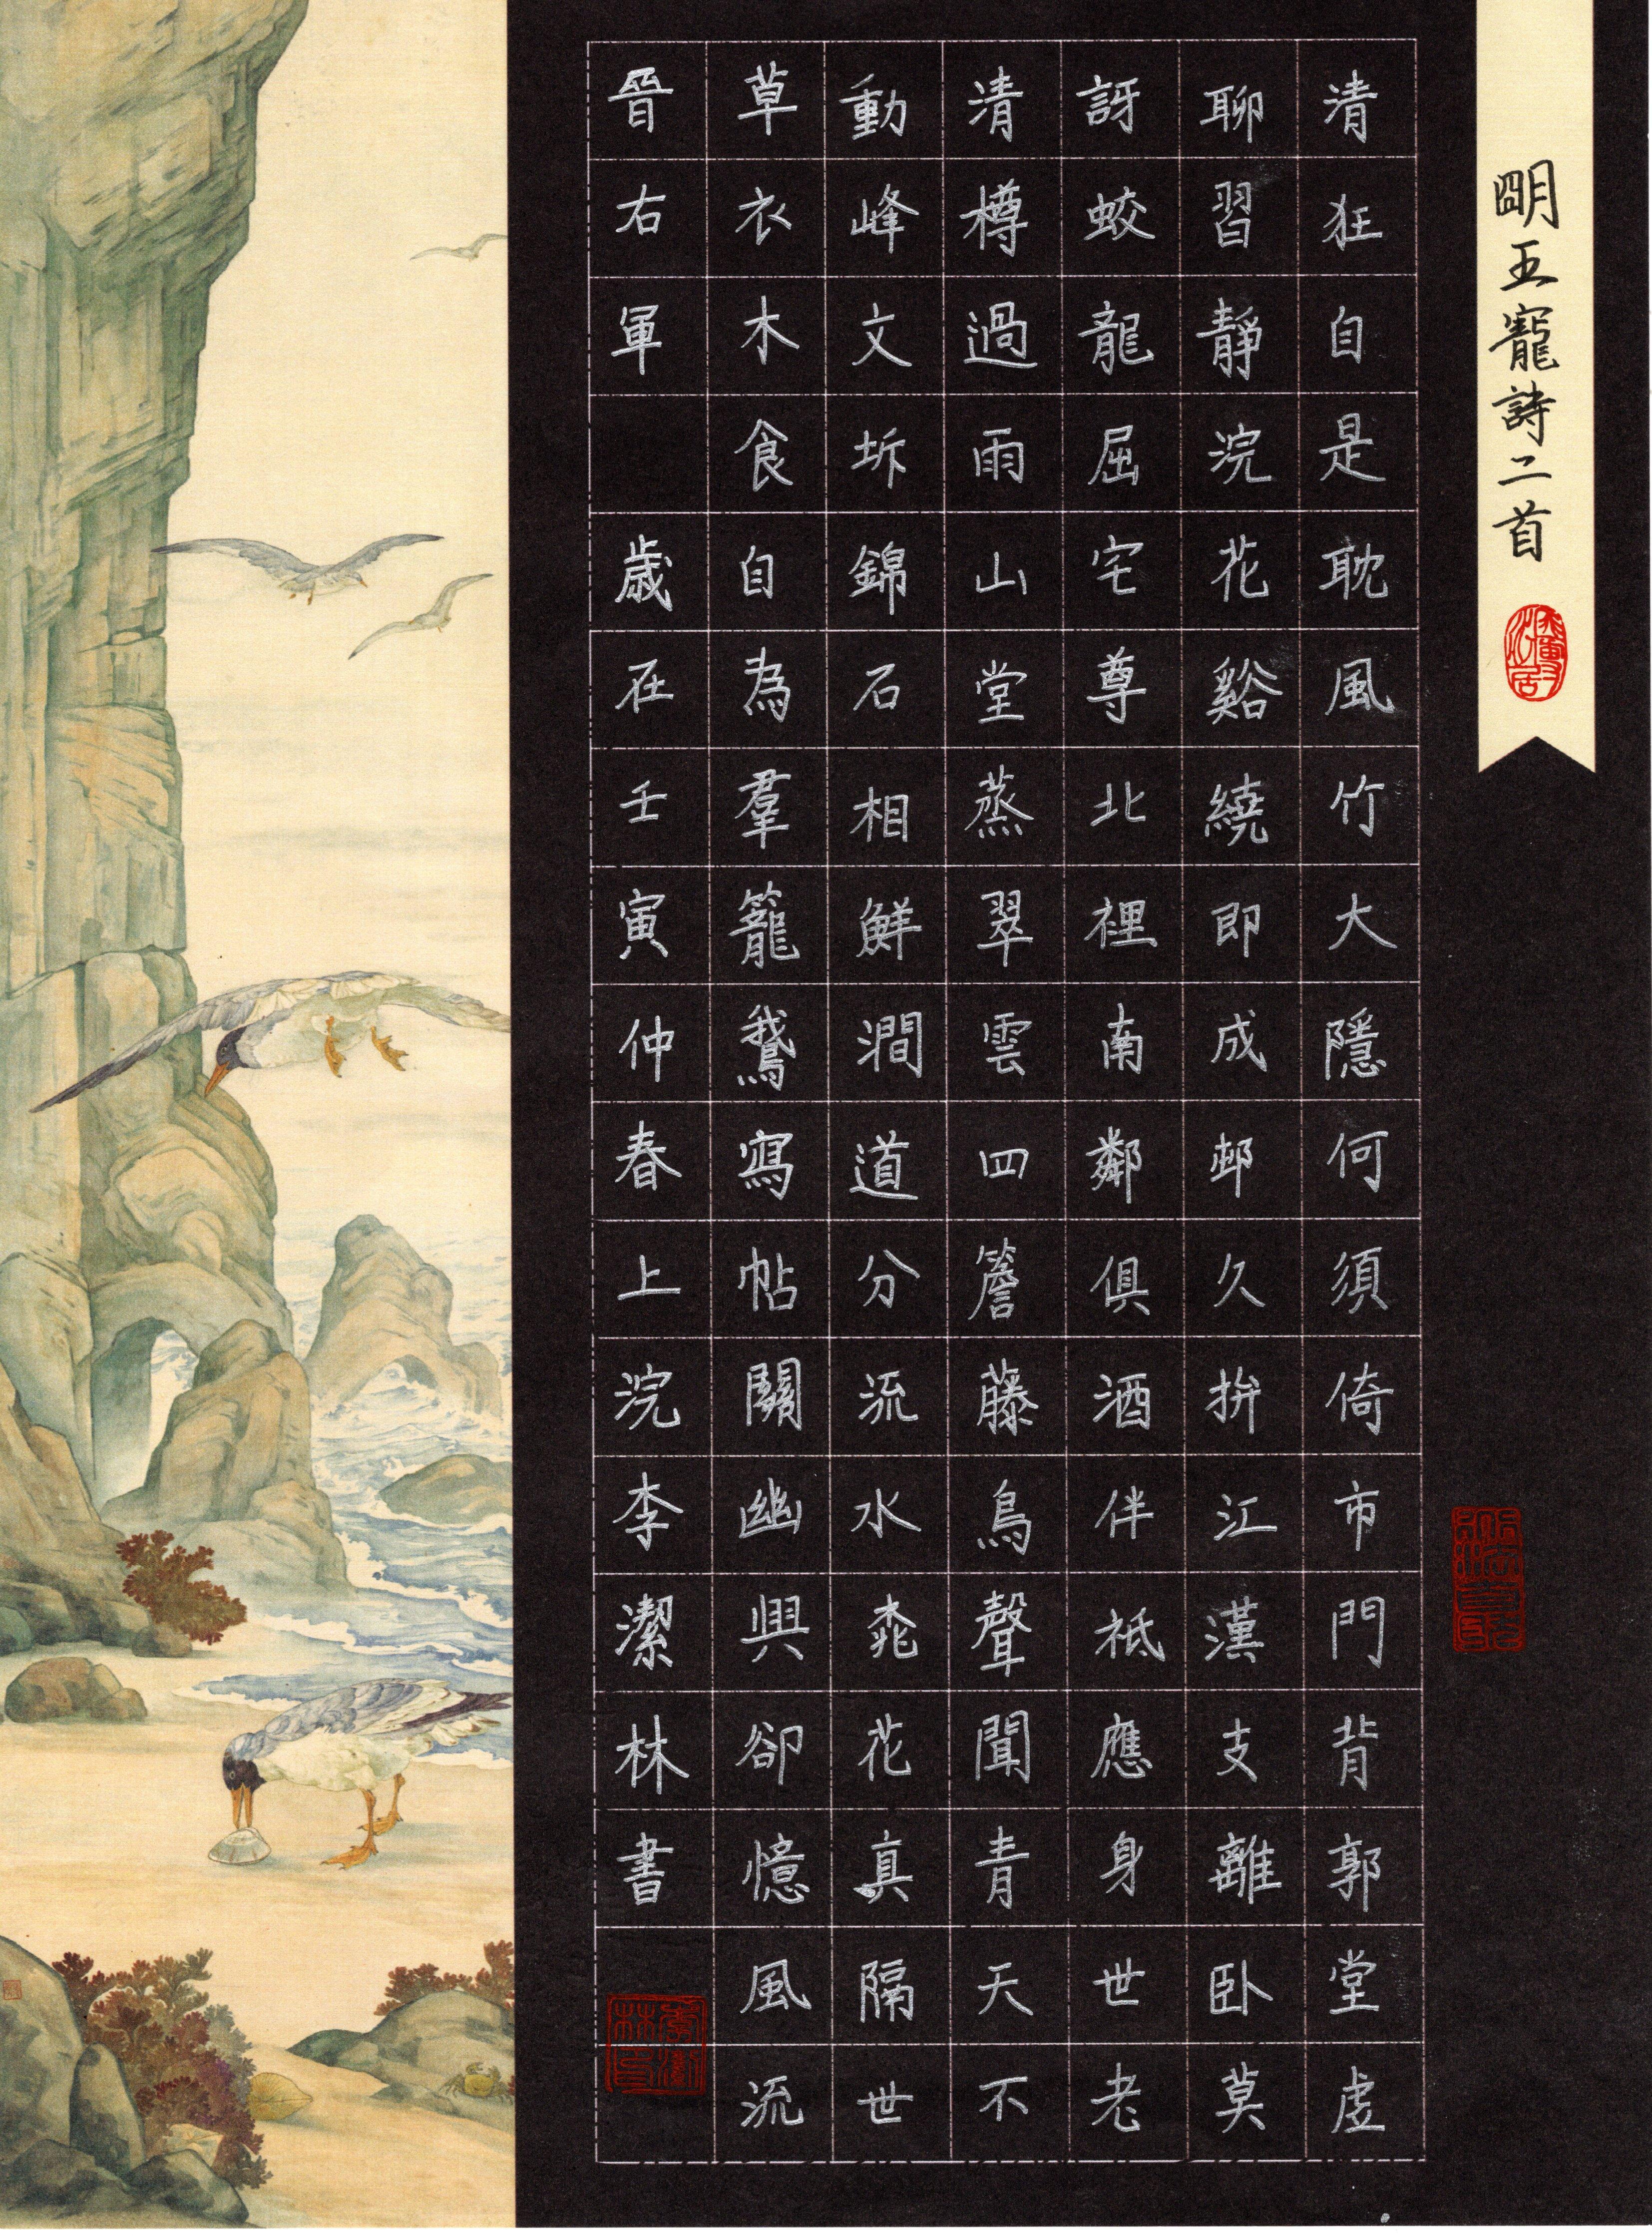 明王寵詩二首
清狂自是耽風竹大隱何須倚市門背郭堂虛
聊習靜浣花谿繞即成邨久拚江漢支離卧莫
訝蛟龍屈宅尊北裡南鄰俱酒伴祇應身世老
清樽過雨山堂蒸翠雲四簷藤烏聲聞青天不
動峰文坼錦石相鮮澗道分流水桃花真隔世
草衣木食自為羣籠鵞寫帖關幽興卻憶風流
晉右軍 歲在壬寅仲春上浣李潔林書